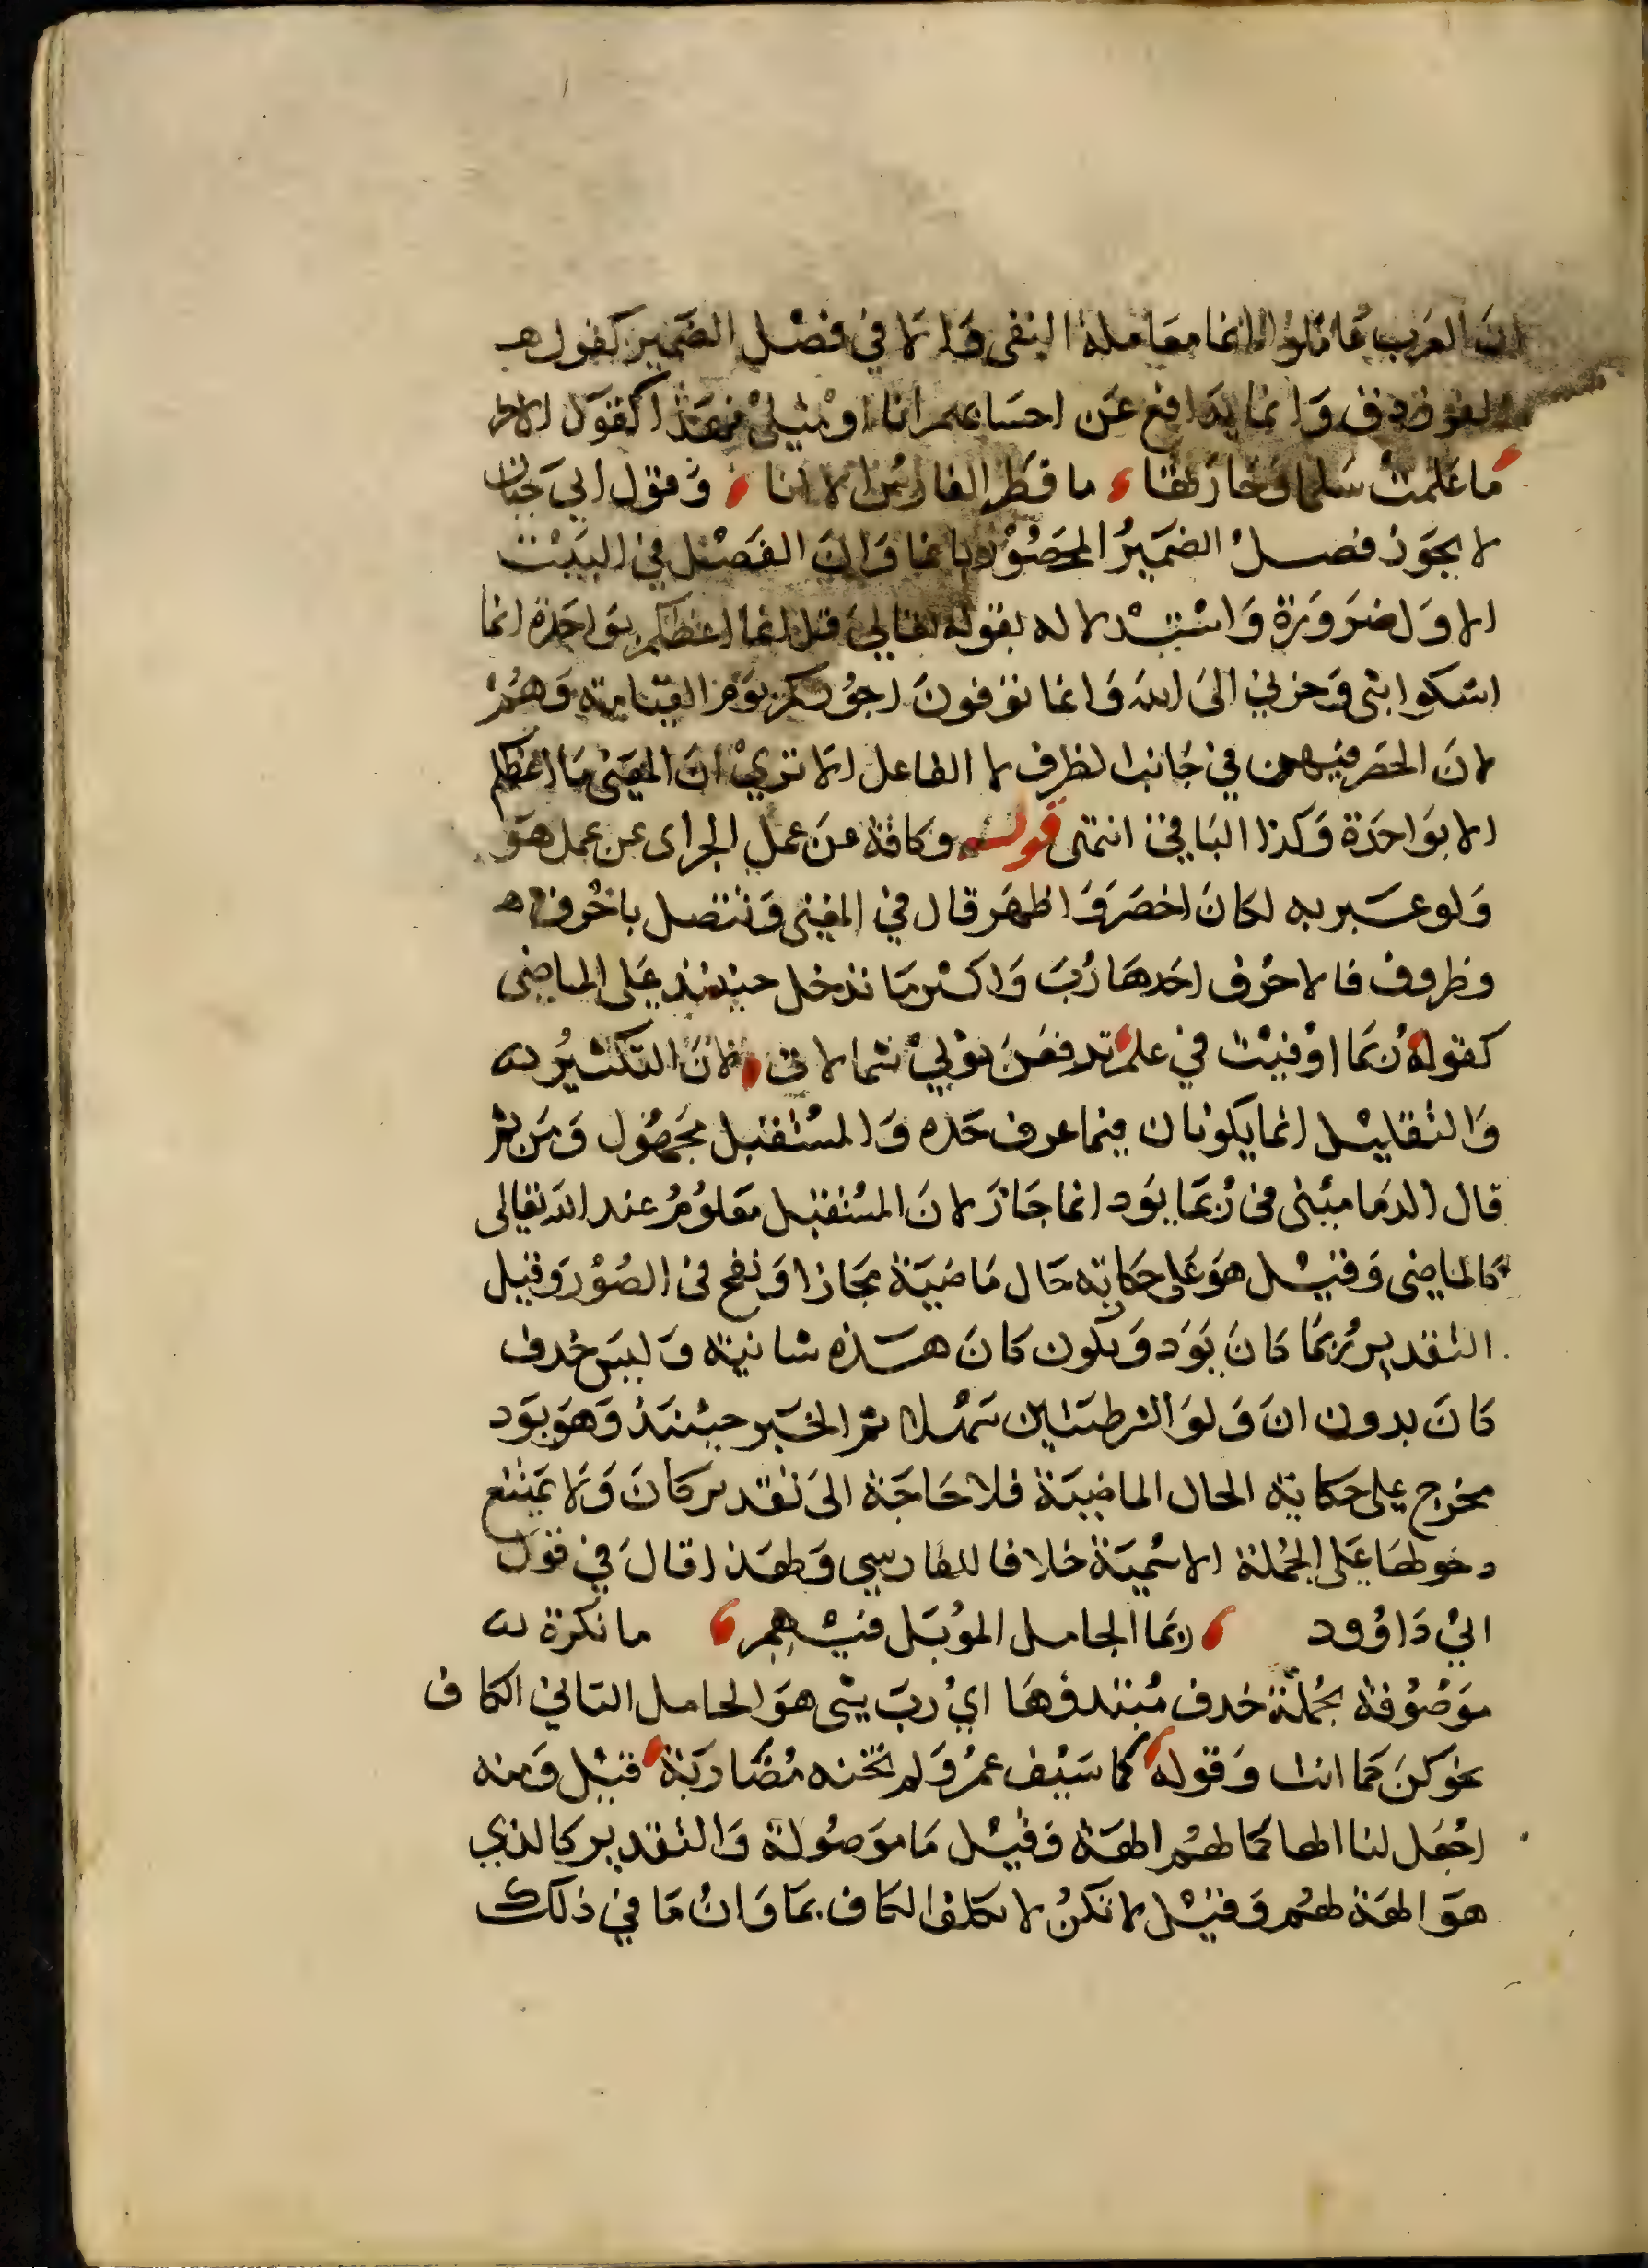 ان العرب عاملوا انما معاملة النفى والا في فصل الضمير كقول
الفرزدق وانما يدافع عن احسابهم انا او مثلي فهذا كقول الاخر
ما علمت سلمى وجاراتها ما قطر الفارس الا انا وقول ابي حيان
لا يجوز فصل الضمير المحصور بانما وان الفصل في البيت
الاول ضرورة واستدلاله بقوله تعالى قل انما اعظكم بواحدة انما
اشكوا بثى وحزني الى الله وانما توفون اجوركم يوم القيامة وهم
لان الحصر فيهن في جانب الظرف لا الفاعل الا ترى ان المعنى ما اعظكم
الا بواحدة وكذا الباقي انتهى قوله وكافة عن عمل الجر اى عن عمل هو
ولو عبر به لكان اخصر واظهر قال في المغنى وتتصل باحرف
وظروف فالاحرف احدها رب واكثر ما تدخل حينئذ على الماضى
كقوله ربما اوفيت في علم ترفعن ثوبي شمالات لان التكثير
والتقليل انما يكونان فيما عرف حده والمستقبل مجهول ومن ثم
قال الرمانى في ربما يود انما جاز لان المستقبل معلوم عند الله تعالى
كالماضى وقيل هو على حكاية حال ماضية مجازا ونفخ في الصور وقيل
التقدير ربما كان يود وتكون كان هذه شانية وليس حذف
كان بدون ان ولو الشرطيتين سهلا ثم الخبر حينئذ وهو يود
مخرج على حكاية الحال الماضية فلا حاجة الى تقدير كان ولا يمتنع
دخولها على الجملة الاسمية خلافا للفارسي ولهذا قال في قول
ابي داوود ربما الجامل المؤبل فيهم ما نكرة
موصوفة بجملة حذف مبتدؤها اي رب شى هو الجامل الثاني الكاف
نحو كن كما انت وقوله كما سيف عمرو لم تخنه مضاربة قيل ومنه
اجعل لنا الها كما لهم الهة وقيل ما موصولة والتقدير كالذي
هو الهة لهم وقيل لا تكف الكاف بما وان ما في ذلك